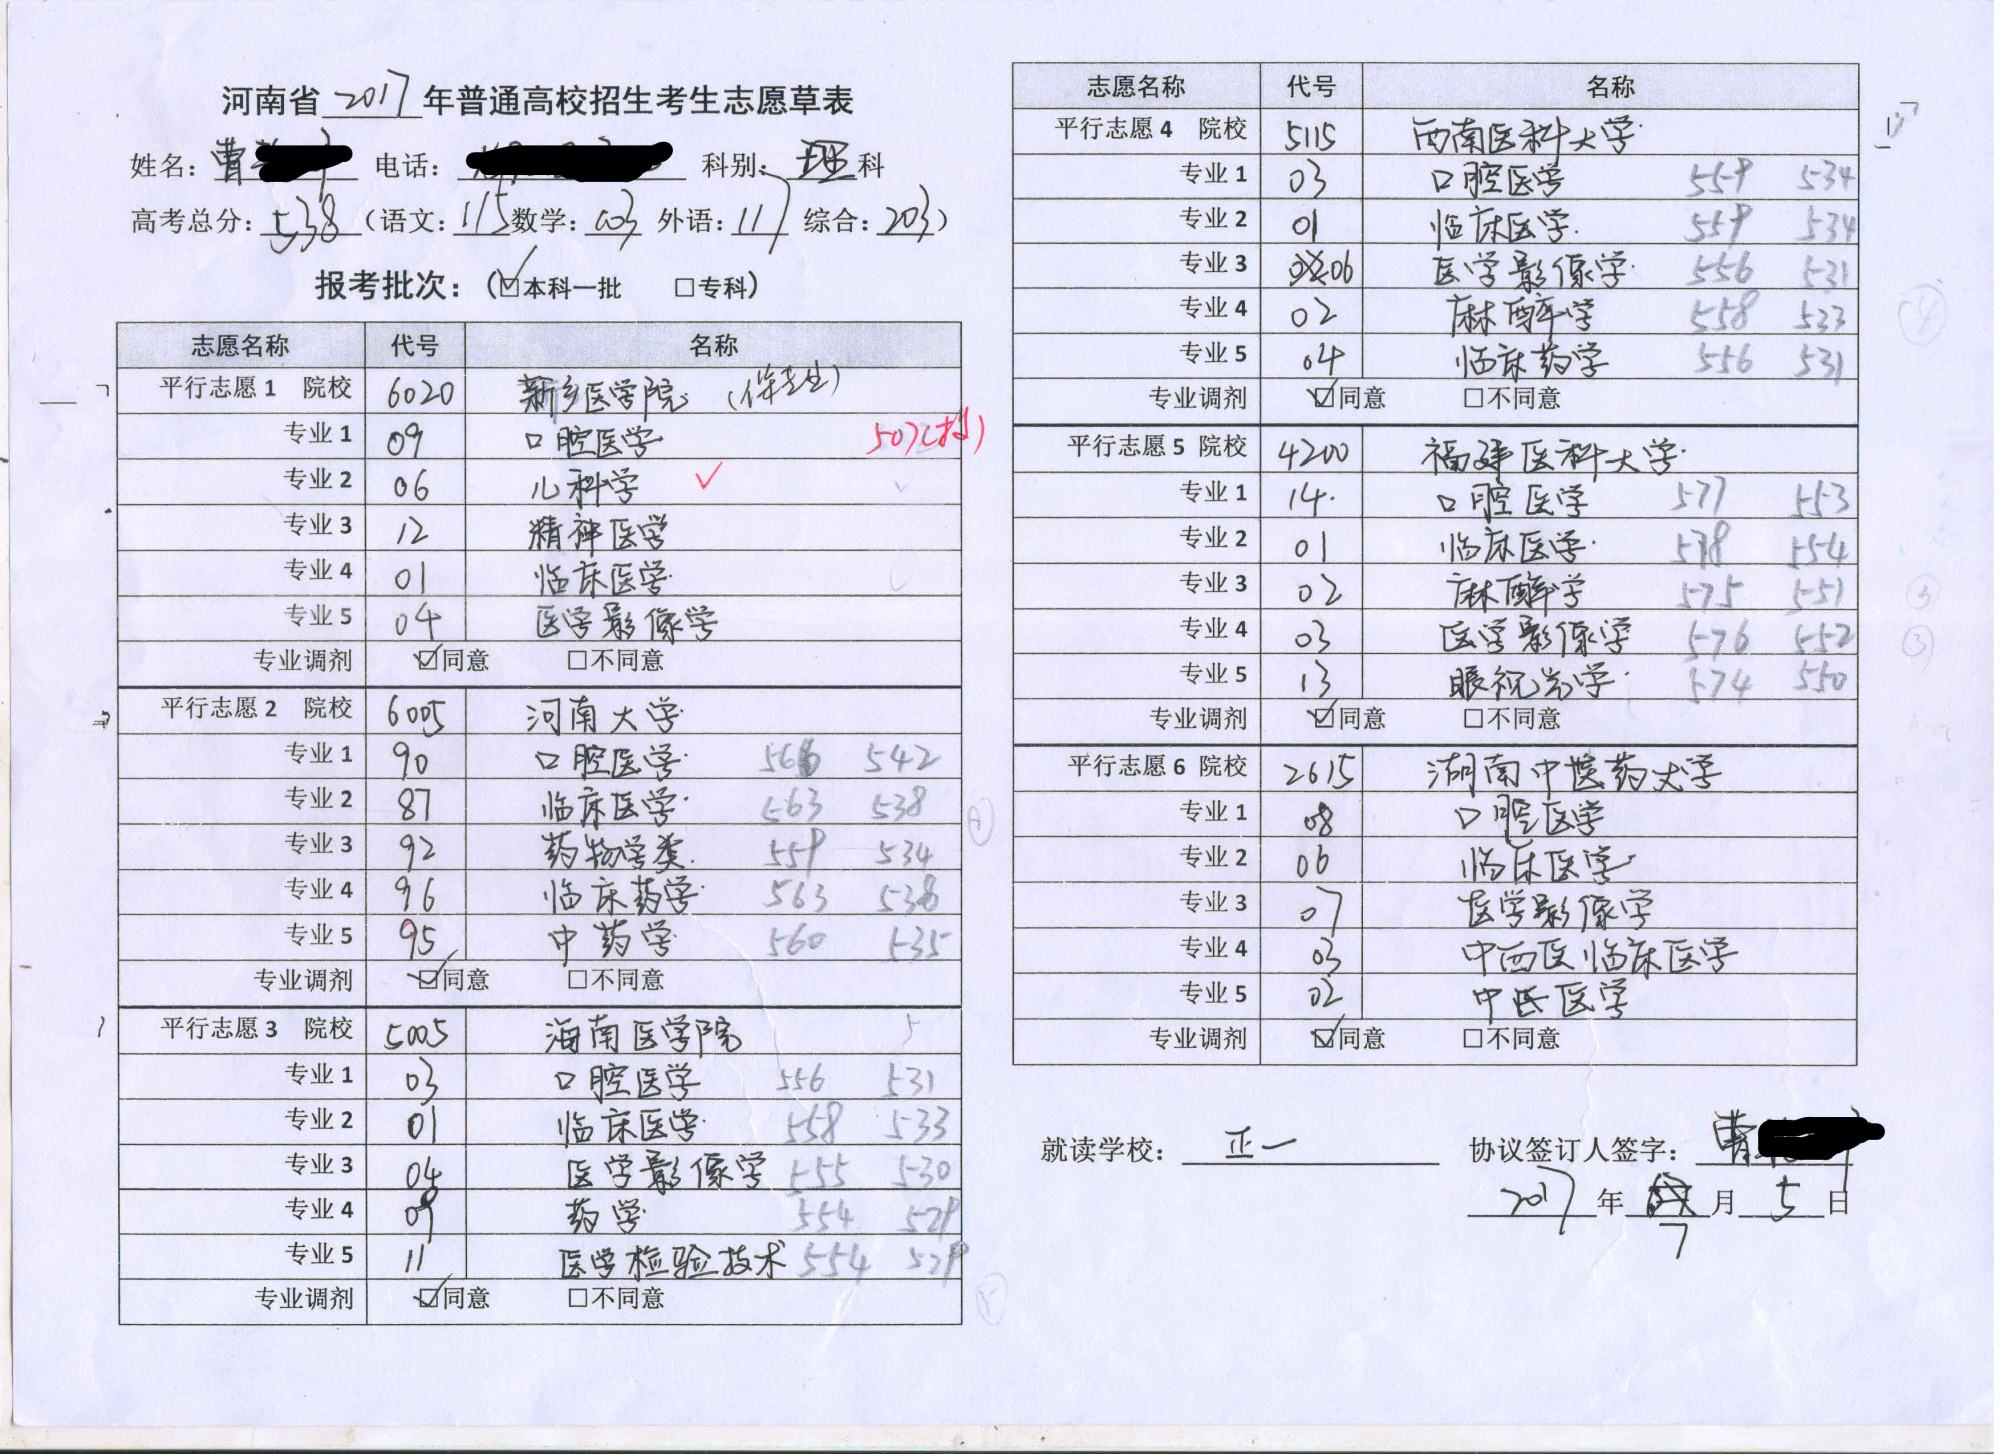 河南省 2017 年普通高校招生考生志愿草表
姓名: 曹 电话: 科别: 理科
高考总分: 538 (语文: 115 数学: 103 外语: 117 综合: 203)
报考批次: (☑本科一批 □专科)
志愿名称 代号 名称
平行志愿1 院校 6020 新乡医学院
专业1 09 口腔医学 507(
专业2 06 儿科学 ✓
专业3 12 精神医学
专业4 01 临床医学
专业5 04 医学影像学
专业调剂 ☑同意 □不同意
平行志愿2 院校 6005 河南大学
专业1 90 口腔医学 566 542
专业2 87 临床医学 563 538
专业3 92 药物学类 559 534
专业4 96 临床药学 563 538
专业5 95 中药学 560 535
专业调剂 ☑同意 □不同意
平行志愿3 院校 5005 海南医学院
专业1 03 口腔医学 556 531
专业2 01 临床医学 558 533
专业3 04 医学影像学 555 530
专业4 09 药学 554 529
专业5 11 医学检验技术 554 529
专业调剂 ☑同意 □不同意
志愿名称 代号 名称
平行志愿4 院校 5115 西南医科大学
专业1 03 口腔医学 559 534
专业2 01 临床医学 559 534
专业3 06 医学影像学 556 531
专业4 02 麻醉学 558 533
专业5 04 临床药学 556 531
专业调剂 ☑同意 □不同意
平行志愿5 院校 4200 福建医科大学
专业1 14 口腔医学 577 553
专业2 01 临床医学 578 554
专业3 02 麻醉学 575 551
专业4 03 医学影像学 576 552
专业5 13 眼视光学 574 550
专业调剂 ☑同意 □不同意
平行志愿6 院校 2615 湖南中医药大学
专业1 08 口腔医学
专业2 06 临床医学
专业3 07 医学影像学
专业4 03 中西医临床医学
专业5 02 中医医学
专业调剂 ☑同意 □不同意
就读学校: 正一 协议签订人签字: 曹
2017 年 7 月 5 日